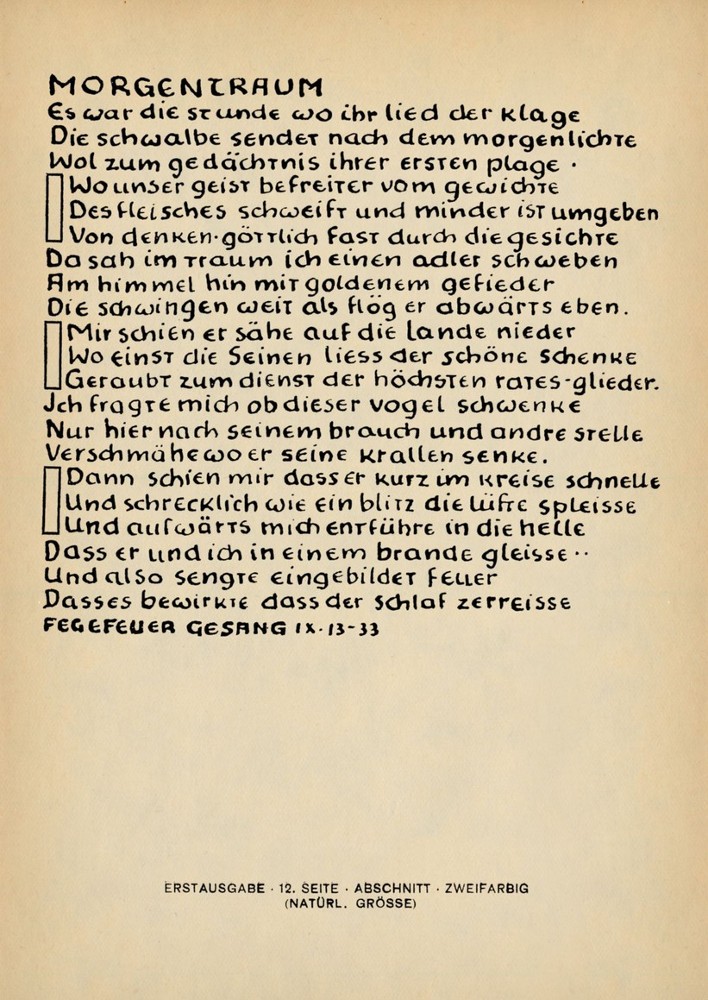 MORGENTRAUM
Es war die stunde wo ihr lied der klage
Die schwalbe sendet nach dem morgenlichte
Wol zum gedächtnis ihrer ersten plage ·
Wo unser geist befreiter vom gewichte
Des fleisches schweift und minder ist umgeben
Von denken · göttlich fast durch die gesichte
Da sah im traum ich einen adler schweben
Am himmel hin mit goldenem gefieder
Die schwingen weit als flög er abwärts eben.
Mir schien er sähe auf die lande nieder
Wo einst die Seinen liess der schöne schenke
Geraubt zum dienst der höchsten rates-glieder.
Ich fragte mich ob dieser vogel schwenke
Nur hier nach seinem brauch und andre stelle
Verschmähe wo er seine krallen senke.
Dann schien mir dass er kurz im kreise schnelle
Und schrecklich wie ein blitz die lüfte spleisse
Und aufwärts mich entführe in die helle
Dass er und ich in einem brande gleisse ··
Und also sengte eingebildet feuer
Dass es bewirkte dass der schlaf zerreisse
FEGEFEUER GESANG IX · 13-33
ERSTAUSGABE · 12. SEITE · ABSCHNITT · ZWEIFARBIG
(NATÜRL. GRÖSSE)